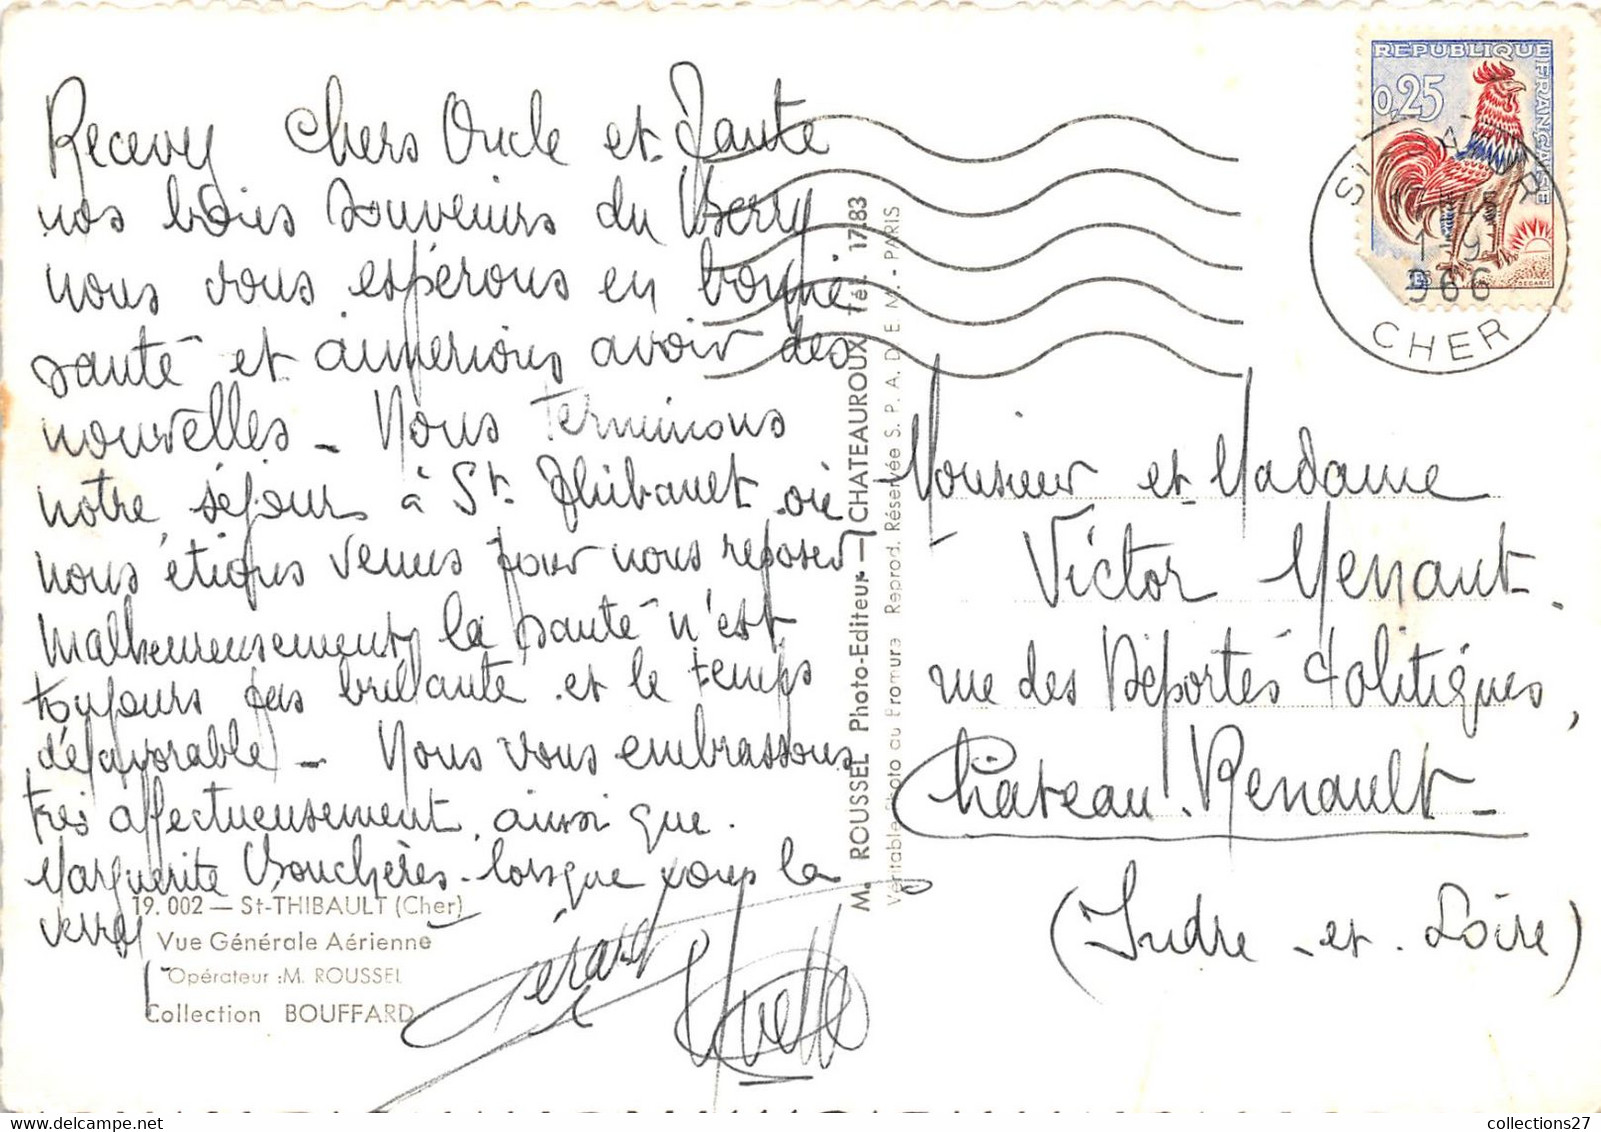 Recevez Chers Oncle et Tante
nos bons souvenirs du Berry
nous vous espérons en bonne
santé et aimerions avoir des
nouvelles - Nous terminons
notre séjour à St. Thibault où
nous étions venus pour nous reposer
Malheureusement la santé n'est
toujours pas brillante et le temps
défavorable - Nous vous embrassons
très affectueusement, ainsi que
Marguerite Bouchères - lorsque vous la
verrez
Gérard
Yvette
19.002 — St-THIBAULT (Cher)
Vue Générale Aérienne
Opérateur : M. ROUSSEL
Collection BOUFFARD
M. ROUSSEL Photo-Editeur — CHATEAUROUX Tél. 17.83
Véritable Photo au Bromure Reprod. Réservée S. P. A. D. E. M. - PARIS
REPUBLIQUE FRANÇAISE
0,25
DECARIS
CHER
Monsieur et Madame
Victor Menant
rue des Déportés Politiques,
Château-Renault -
(Indre - et - Loire)
collections27